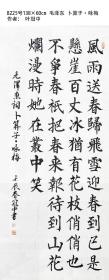 B225号138×60cm 毛泽东 卜算子·咏梅
作者： 叶冠中
風雨送春歸飛雪迎春到已是
懸崖百丈冰猶有花枝俏俏也
不爭春只把春來報待到山花
爛漫時她在叢中笑
毛澤東詞卜算子·咏梅